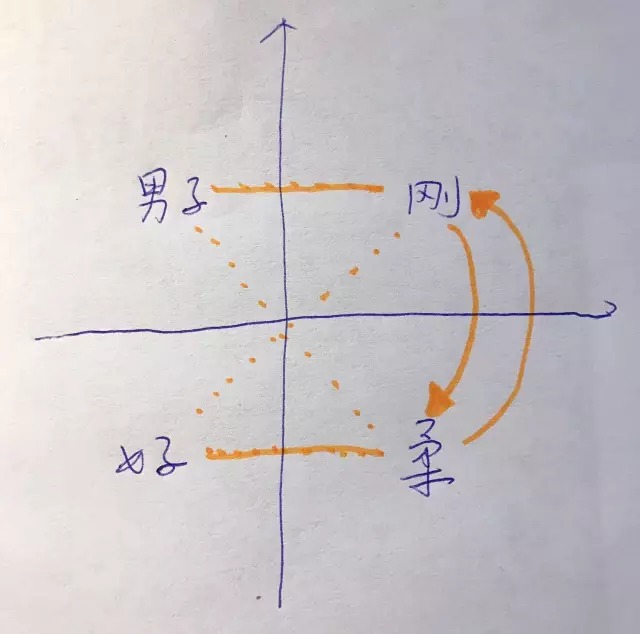 男子 刚
女子 柔